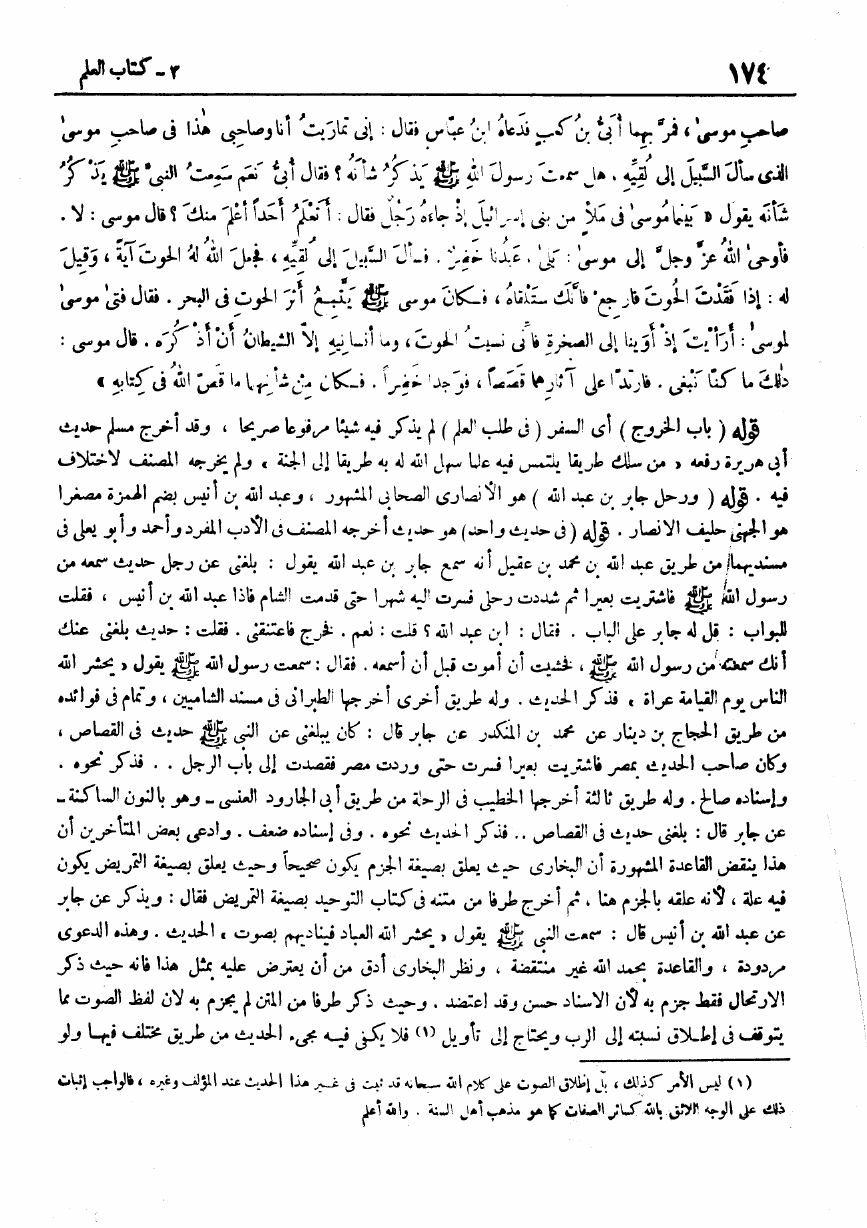 ١٧٤
٣ - كتاب العلم
صاحبِ موسىٰ ، فمرَّ بهما أُبَىُّ بنُ كعبٍ فدَعاهُ ابنُ عبّاسٍ فقال : إنى تمارَيتُ أنا وصاحِبِى هٰذا فى صاحبِ موسىٰ
الذى سأَلَ السَّبيلَ إلى لُقِيِّهِ ، هل سمعتَ رسولَ اللهِ ﷺ يَذكُرُ شأنَهُ ؟ فقال أُبىٌّ نَعَم سَمِعتُ النبىَّ ﷺ يَذْكُرُ
شأنَه يقول « بَينَما مُوسىٰ فى مَلَأٍ من بنى إسرائيلَ إذْ جاءَهُ رَجُلٌ فقال : أَتَعْلَمُ أحَداً أعْلمَ منكَ ؟ قال موسى : لا .
فأوحىٰ اللهُ عزَّ وجلَّ إلى موسىٰ : بَلىٰ ، عَبدُنا خَضِرٌ . فسألَ السَّبيلَ إلى لُقِيِّهِ ، فجعلَ اللهُ لهُ الحوتَ آيةً ، وَقِيلَ
له : إذا فَقَدْتَ الحُوتَ فارجِعْ فانَّكَ ستَلْقاهُ ، فكانَ موسى ﷺ يَتَّبِعُ أثَرَ الحوتِ فى البحر . فقال فتىٰ موسىٰ
لموسىٰ : أرَأَيْتَ إذْ أوَينا إلى الصخرةِ فانّى نسيتُ الحوتَ ، وما أنسانِيهِ إلاّ الشيطانُ أنْ أذْكُرَه . قال موسى :
ذٰلكَ ما كنّا نَبْغى . فارتَدّا على آثارِهما قَصَصاً ، فوَجدا خَضِراً . فكان مِنْ شأنِهما ما قصّ اللهُ فى كتابِه »
قوله ( باب الخروج ) أى السفر ( فى طلب العلم ) لم يذكر فيه شيئا مرفوعا صريحا ، وقد أخرج مسلم حديث
أبى هريرة رفعه « من سلك طريقا يلتمس فيه علما سهل الله له به طريقا إلى الجنة » ولم يخرجه المصنف لاختلاف
فيه . قوله ( ورحل جابر بن عبد الله ) هو الأنصارى الصحابى المشهور ، وعبد الله بن أنيس بضم الهمزة مصغرا
هو الجهنى حليف الانصار . قوله ( فى حديث واحد ) هو حديث أخرجه المصنف فى الأدب المفرد وأحمد وأبو يعلى فى
مسنديهما من طريق عبد الله بن محمد بن عقيل أنه سمع جابر بن عبد الله يقول : بلغنى عن رجل حديث سمعه من
رسول الله ﷺ فاشتريت بعيرا ثم شددت رحلى فسرت اليه شهرا حتى قدمت الشام فاذا عبد الله بن أنيس ، فقلت
للبواب : قل له جابر على الباب . فقال : ابن عبد الله ؟ قلت : نعم . فخرج فاعتنقنى . فقلت : حديث بلغنى عنك
أنك سمعته من رسول الله ﷺ ، فخشيت أن أموت قبل أن أسمعه . فقال : سمعت رسول الله ﷺ يقول « يحشر الله
الناس يوم القيامة عراة » فذكر الحديث . وله طريق أخرى أخرجها الطبرانى فى مسند الشاميين ، وتمام فى فوائده
من طريق الحجاج بن دينار عن محمد بن المنكدر عن جابر قال : كان يبلغنى عن النبى ﷺ حديث فى القصاص ،
وكان صاحب الحديث بمصر فاشتريت بعيرا فسرت حتى وردت مصر فقصدت إلى باب الرجل . . فذكر نحوه .
وإسناده صالح . وله طريق ثالثة أخرجها الخطيب فى الرحلة من طريق أبى الجارود العنسى ـ وهو بالنون الساكنة ـ
عن جابر قال : بلغنى حديث فى القصاص .. فذكر الحديث نحوه . وفى إسناده ضعف . وادعى بعض المتأخرين أن
هذا ينقض القاعدة المشهورة أن البخارى حيث يعلق بصيغة الجزم يكون صحيحاً وحيث يعلق بصيغة التمريض يكون
فيه علة ، لأنه علقه بالجزم هنا ، ثم أخرج طرفا من متنه فى كتاب التوحيد بصيغة التمريض فقال : ويذكر عن جابر
عن عبد الله بن أنيس قال : سمعت النبى ﷺ يقول « يحشر الله العباد فيناديهم بصوت » الحديث . وهذه الدعوى
مردودة ، والقاعدة بحمد الله غير منتقضة ، ونظر البخارى أدق من أن يعترض عليه بمثل هذا فانه حيث ذكر
الارتحال فقط جزم به لأن الاسناد حسن وقد اعتضد . وحيث ذكر طرفا من المتن لم يجزم به لان لفظ الصوت مما
يتوقف فى إطلاق نسبته إلى الرب ويحتاج إلى تأويل (١) فلا يكفى فيه مجىء الحديث من طريق مختلف فيها ولو
(١) ليس الأمر كذلك ، بل إطلاق الصوت على كلام الله سبحانه قد ثبت فى غير هذا الحديث عند المؤلف وغيره ، فالواجب إثبات
ذلك على الوجه اللائق بالله كسائر الصفات كما هو مذهب أهل السنة . والله أعلم